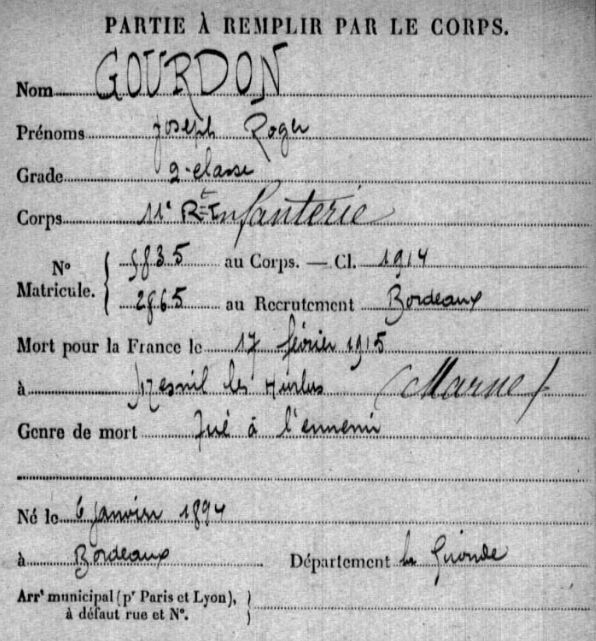 PARTIE À REMPLIR PAR LE CORPS.
Nom GOURDON
Prénoms Joseph Roger
Grade 2e classe
Corps 11e Rt Infanterie
No Matricule. 5835 au Corps. — Cl. 1914
2865 au Recrutement Bordeaux
Mort pour la France le 17 février 1915
à Mesnil les Hurlus (Marne)
Genre de mort Tué à l'ennemi
Né le 6 janvier 1894
à Bordeaux Département la Gironde
Arrt municipal (pr Paris et Lyon),
à défaut rue et No.